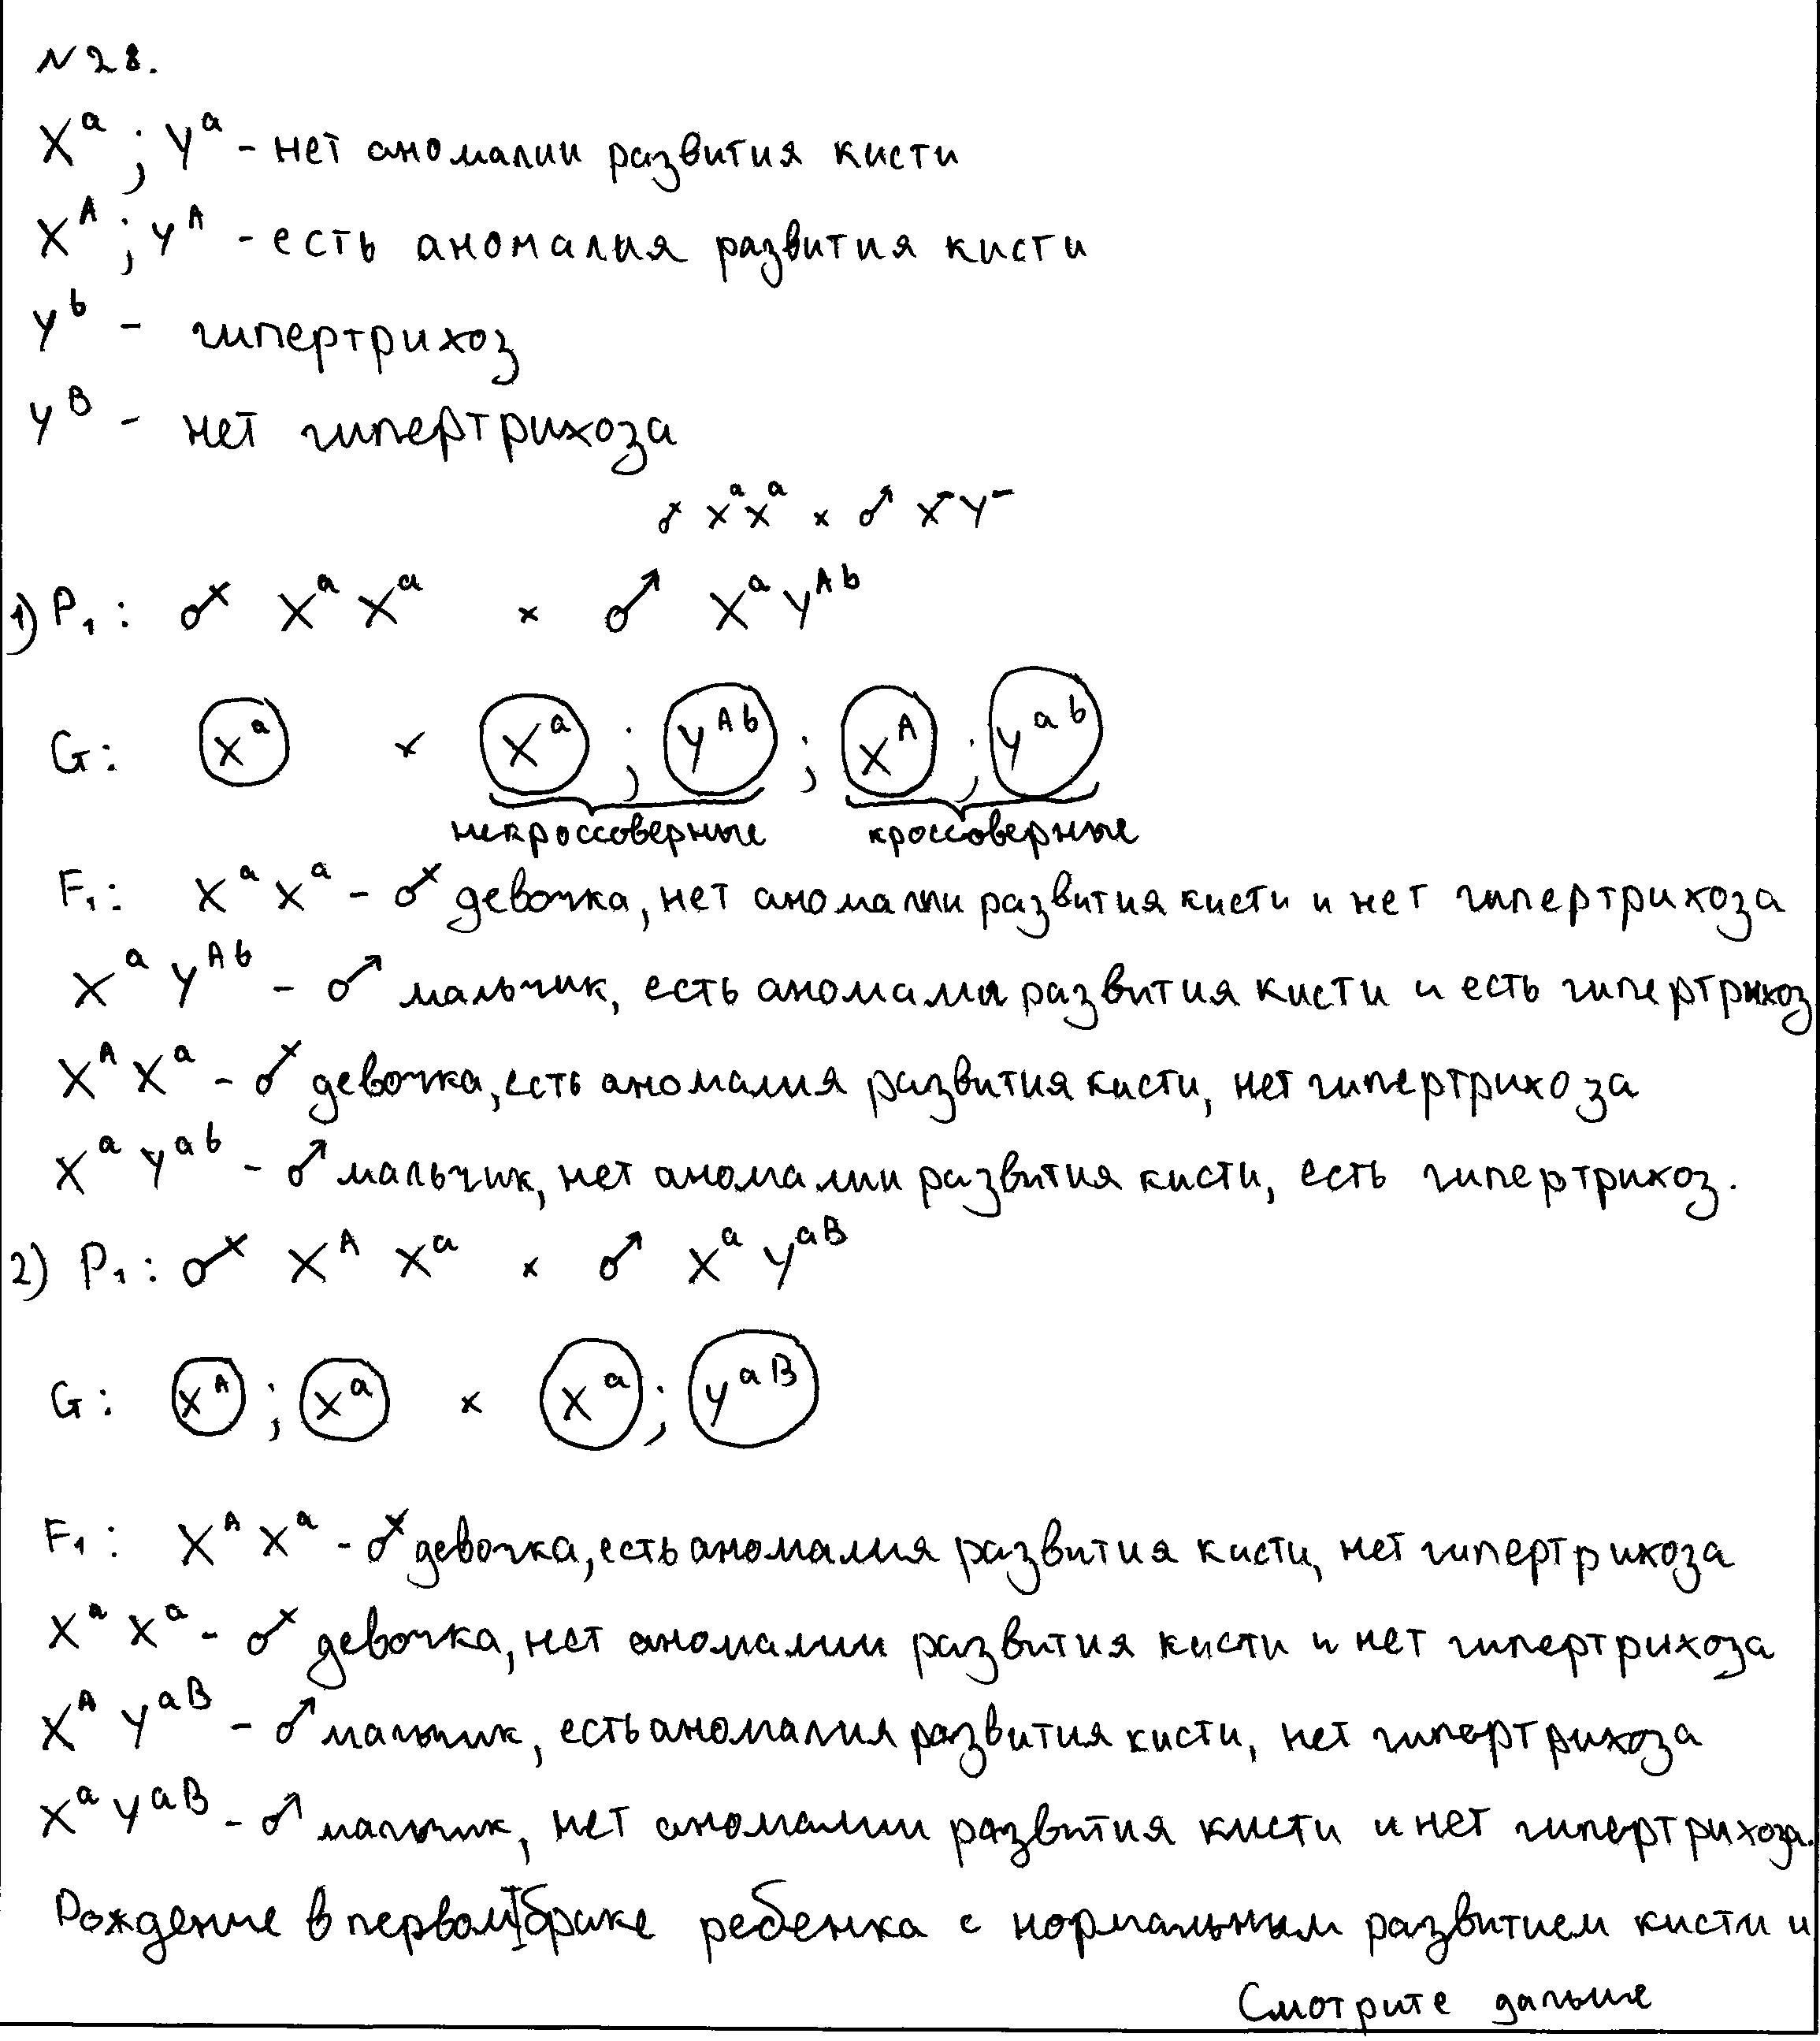 N 28.
X^a ; Y^a - нет аномалии развития кисти
X^A ; Y^A - есть аномалия развития кисти
Y^b - гипертрихоз
Y^B - нет гипертрихоза
♀ X^a X^a × ♂ X^- Y^-
1) P₁: ♀ X^a X^a × ♂ X^a Y^Ab
G: X^a × X^a ; Y^Ab ; X^A ; Y^ab
некроссоверные кроссоверные
F₁: X^a X^a - ♀ девочка, нет аномалии развития кисти и нет гипертрихоза
X^a Y^Ab - ♂ мальчик, есть аномалия развития кисти и есть гипертрихоз
X^A X^a - ♀ девочка, есть аномалия развития кисти, нет гипертрихоза
X^a Y^ab - ♂ мальчик, нет аномалии развития кисти, есть гипертрихоз.
2) P₁: ♀ X^A X^a × ♂ X^a Y^aB
G: X^A ; X^a × X^a ; Y^aB
F₁: X^A X^a - ♀ девочка, есть аномалия развития кисти, нет гипертрихоза
X^a X^a - ♀ девочка, нет аномалии развития кисти и нет гипертрихоза
X^A Y^aB - ♂ мальчик, есть аномалия развития кисти, нет гипертрихоза
X^a Y^aB - ♂ мальчик, нет аномалии развития кисти и нет гипертрихоза.
Рождение в первом браке ребенка с нормальным развитием кисти и
Смотрите дальше